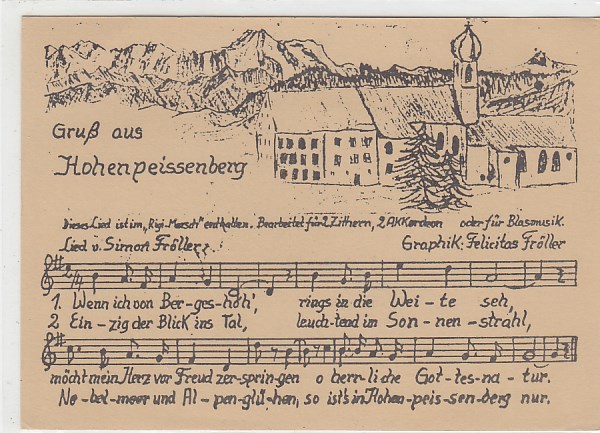 Gruß aus
Hohenpeissenberg
Dieses Lied ist im „Rigi-Marsch" enthalten. Bearbeitet für 2 Zithern, 2 AKKordeon oder für Blasmusik.
Lied v. Simon Fröller. Graphik: Felicitas Fröller
1. Wenn ich von Ber-ges-höh', rings in die Wei-te seh,
2 Ein-zig der Blick ins Tal, leuch-tend im Son-nen-strahl,
möcht mein Herz vor Freud zer-sprin-gen o herr-li-che Got-tes-na-tur.
Ne-bel-meer und Al-pen-glü-hen, so ist's in Hohen-peis-sen-berg nur.